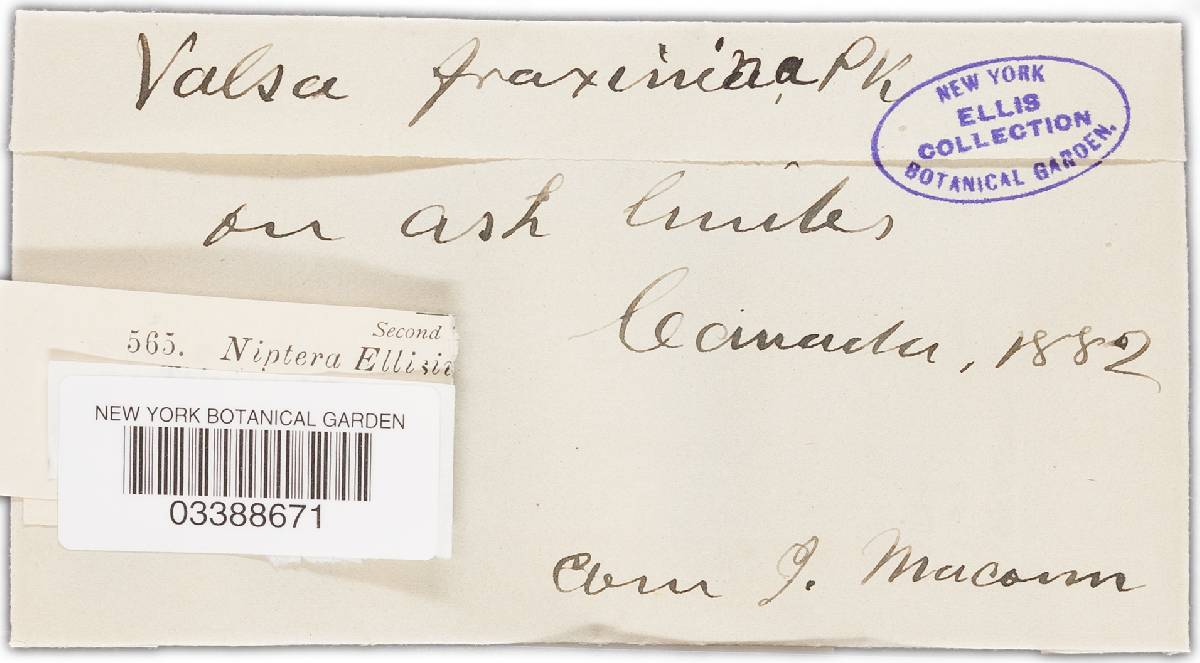 Valsa fraxinina, PK
NEW YORK
ELLIS
COLLECTION
BOTANICAL GARDEN.
on ash limbs
Canada, 1882
Second
565. Niptera Ellisi
NEW YORK BOTANICAL GARDEN
03388671
com J. Macoun